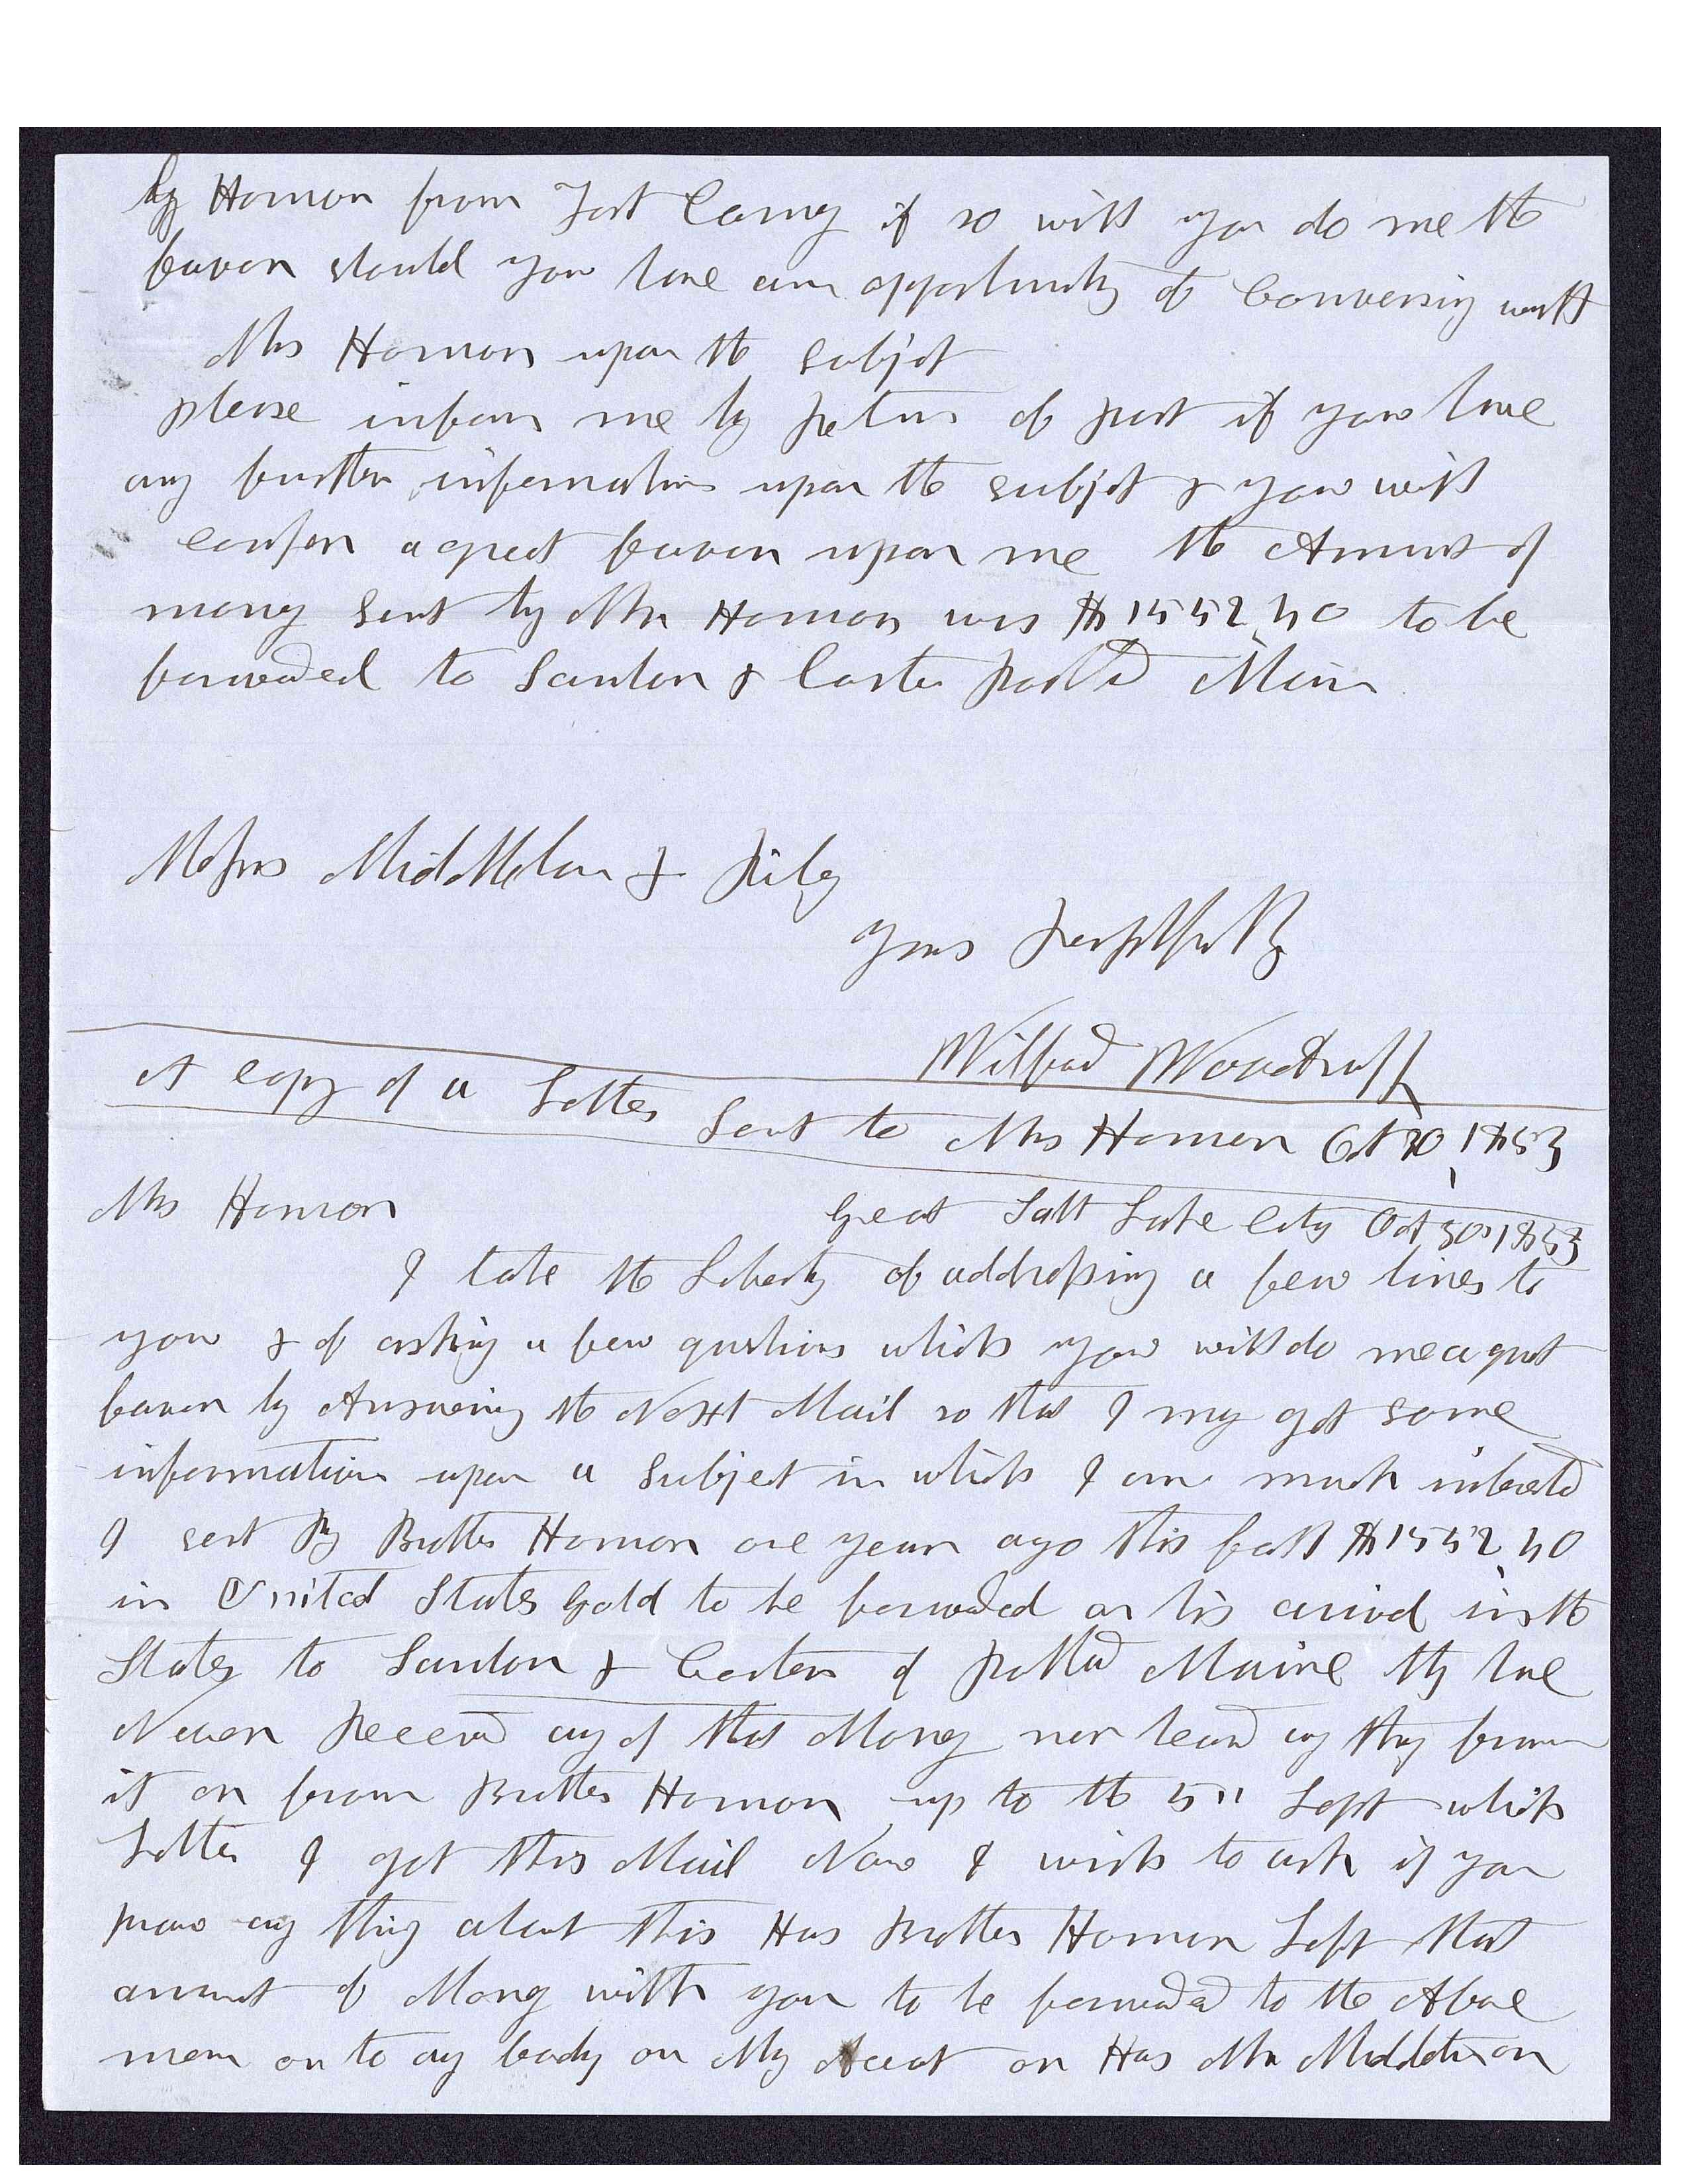 by Homon from Fort Carny if so will you do me the
favor should you have an opportunity of Conversing with
Mrs Homon upon the subjet
please inform me by Return of post if you have
any further information upon the subjet & you will
confer a great favor upon me the Amount of
money Sent by Mr Homon was $1552,40 to be
forwarded to Scamton & Carter Portld Maine
Messrs Middleton & Riley
yours Respetfully
Wilford Woodruff
A Copy of a Letter Sent to Mrs Homon Oct 30, 1853
Mrs Homon Great Salt Lake City Oct 30, 1853
I take the Liberty of addressing a few lines to
you & of asking a few questions which you will do me a great
favor by Answering the Next Mail so that I may get some
information upon a Subject in which I am much interestd
I sent By Brother Homon one year ago this fall $1552,40
in United States Gold to be forwarded on his arival in the
States to Scamton & Carter of Portland Maine they have
Never Received any of that Money nor heard any thing from
it or from Brother Homon up to the 5" Sept which
Letter I got this Mail Now I wish to ask if you
know any thing about this Has Brother Homon Left that
amount of Money with you to be forwarded to the Above
men or to any body on My Acount or Has Mr Middleton